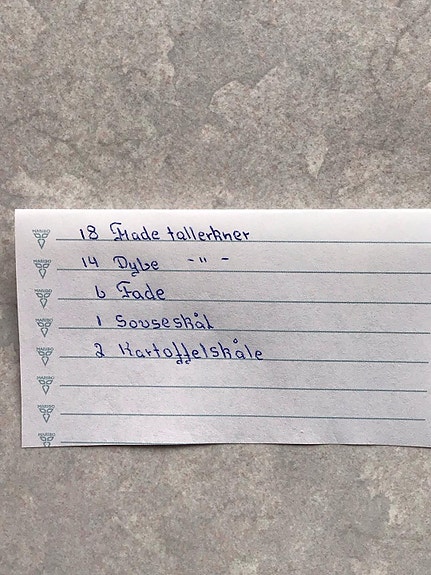 HARIBO
18 Flade tallerkner
HARIBO
14 Dybe -"-
HARIBO
6 Fade
HARIBO
1 Sovseskål
HARIBO
2 Kartoffelskåle
HARIBO
HARIBO
HARIBO